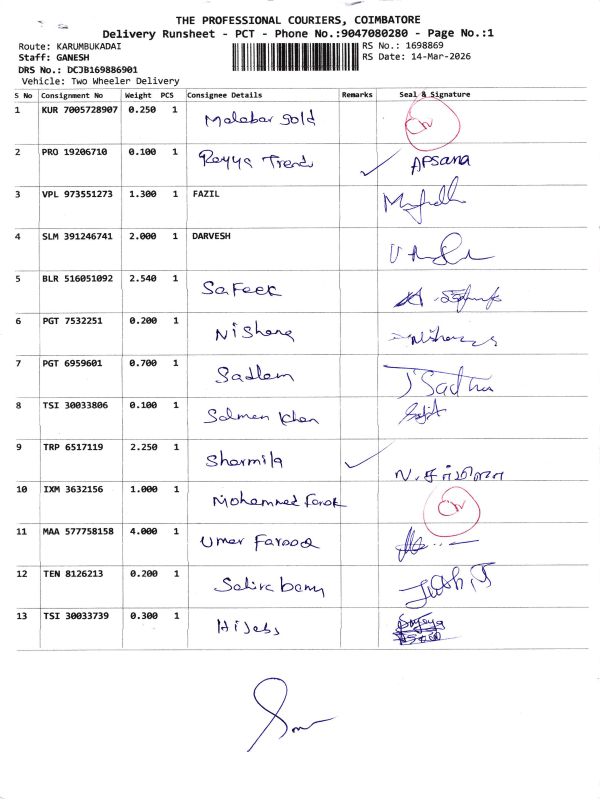 THE PROFESSIONAL COURIERS, COIMBATORE
Delivery Runsheet - PCT - Phone No.:9047080280 - Page No.:1
Route: KARUMBUKADAI RS No.: 1698869
Staff: GANESH RS Date: 14-Mar-2026
DRS No.: DCJB169886901
Vehicle: Two Wheeler Delivery
S No Consignment No Weight PCS Consignee Details Remarks Seal & Signature
1 KUR 7005728907 0.250 1 Malabar Gold
2 PRO 19206710 0.100 1 Trend ✓ Afsana
3 VPL 973551273 1.300 1 FAZIL
4 SLM 391246741 2.000 1 DARVESH
5 BLR 516051092 2.540 1 Safeek
6 PGT 7532251 0.200 1 Nishana
7 PGT 6959601 0.700 1 Sadlem
8 TSI 30033806 0.100 1 Salman Khan
9 TRP 6517119 2.250 1 Sharmila ✓
10 IXM 3632156 1.000 1 Mohammed Farok
11 MAA 577758158 4.000 1 Umar Farooq
12 TEN 8126213 0.200 1
13 TSI 30033739 0.300 1 Hijabs